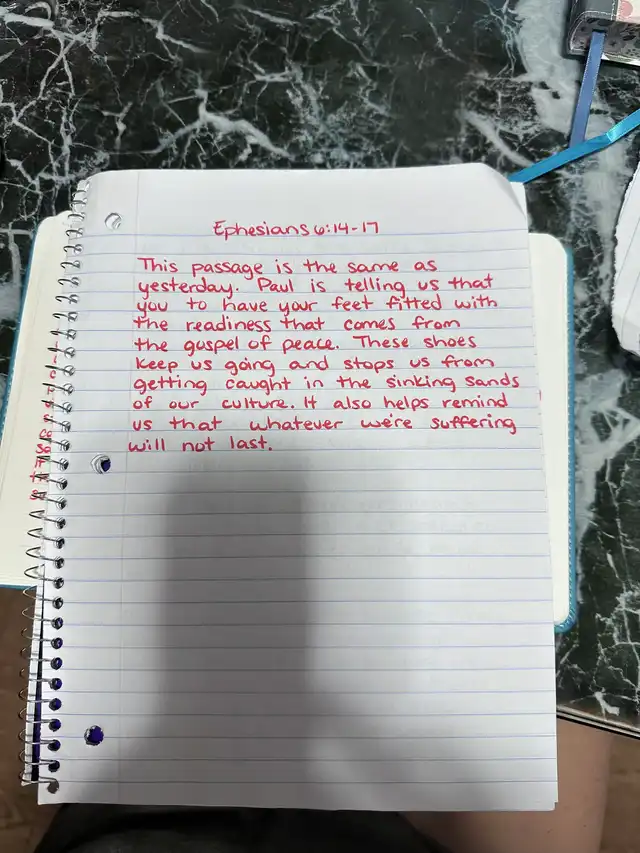 Ephesians 6:14-17
This passage is the same as
yesterday. Paul is telling us that
you to have your feet fitted with
the readiness that comes from
the gospel of peace. These shoes
keep us going and stops us from
getting caught in the sinking sands
of our culture. It also helps remind
us that whatever we're suffering
will not last.